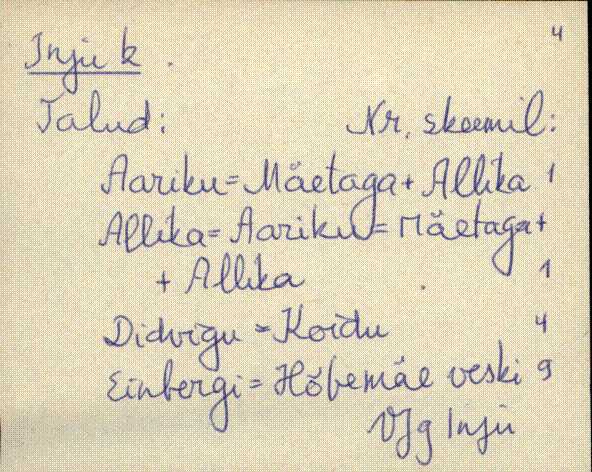 4
Inju k.
Talud: Nr. skeemil:
Aariku = Mäetaga + Allika 1
Allika = Aariku = Mäetaga +
+ Allika 1
Didvigu = Koidu 4
Einbergi = Hõbemäe veski 9
VJg Inju